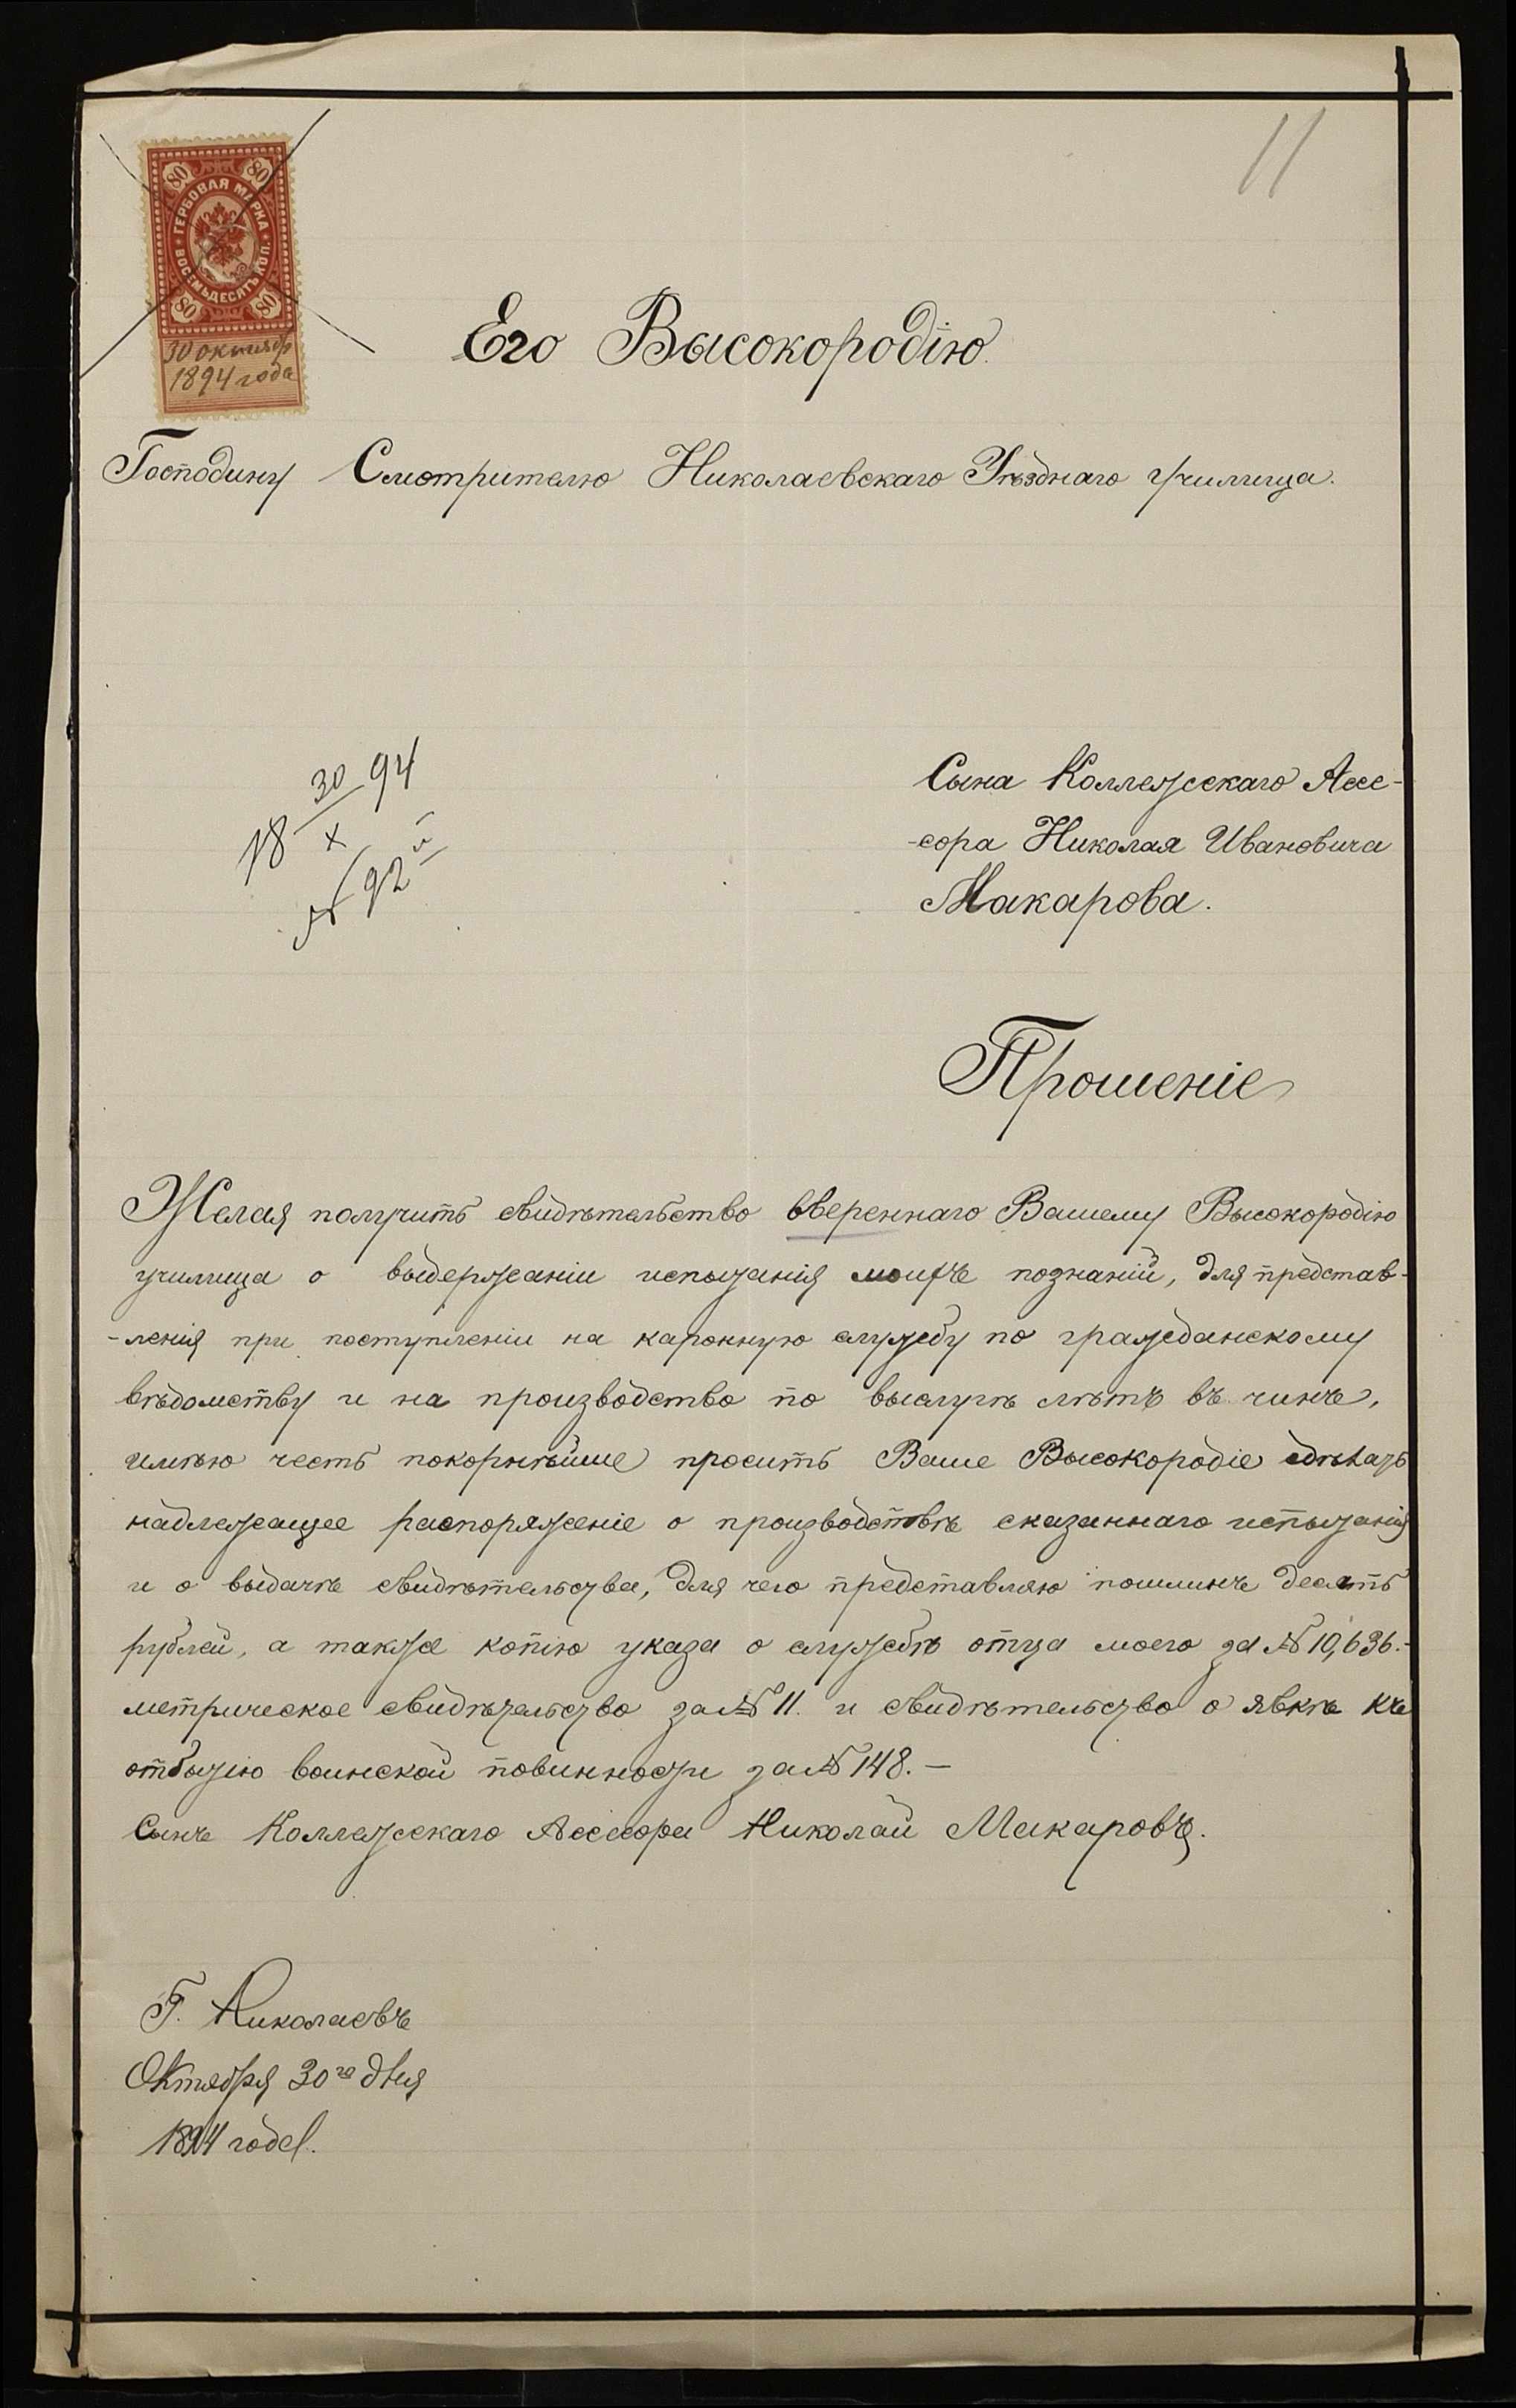 11
80 80
ГЕРБОВАЯ МАРКА
ВОСЕМЬДЕСЯТЪ КОП.
80 80
30 октября
1894 года
Его Высокородію
Господину Смотрителю Николаевскаго Уѣзднаго училища.
18 30/X 94
№ 92
Сына Коллежскаго Ассе-
-сора Николая Ивановича
Макарова.
Прошеніе
Желая получить свидѣтельство ввереннаго Вашему Высокородію
училища о выдержаніи испытанія моихъ познаній, для представ-
-ленія при поступленіи на каронную службу по гражданскому
вѣдомству и на производство по выслугѣ лѣтъ въ чинъ,
имѣю честь покорнѣйше просить Ваше Высокородіе сдѣлать
надлежащее распоряженіе о производствѣ сказаннаго испытанія
и о выдачѣ свидѣтельства, для чего представляю пошлинъ десять
рублей, а также копію указа о службѣ отца моего за № 10,636.-
метрическое свидѣтельство за № 11. и свидѣтельство о явкѣ къ
отбытію воинской повинности за № 148.—
Сынъ Коллежскаго Ассесора Николай Макаровъ.
Г. Николаевъ
Октября 30го дня
1894 года.